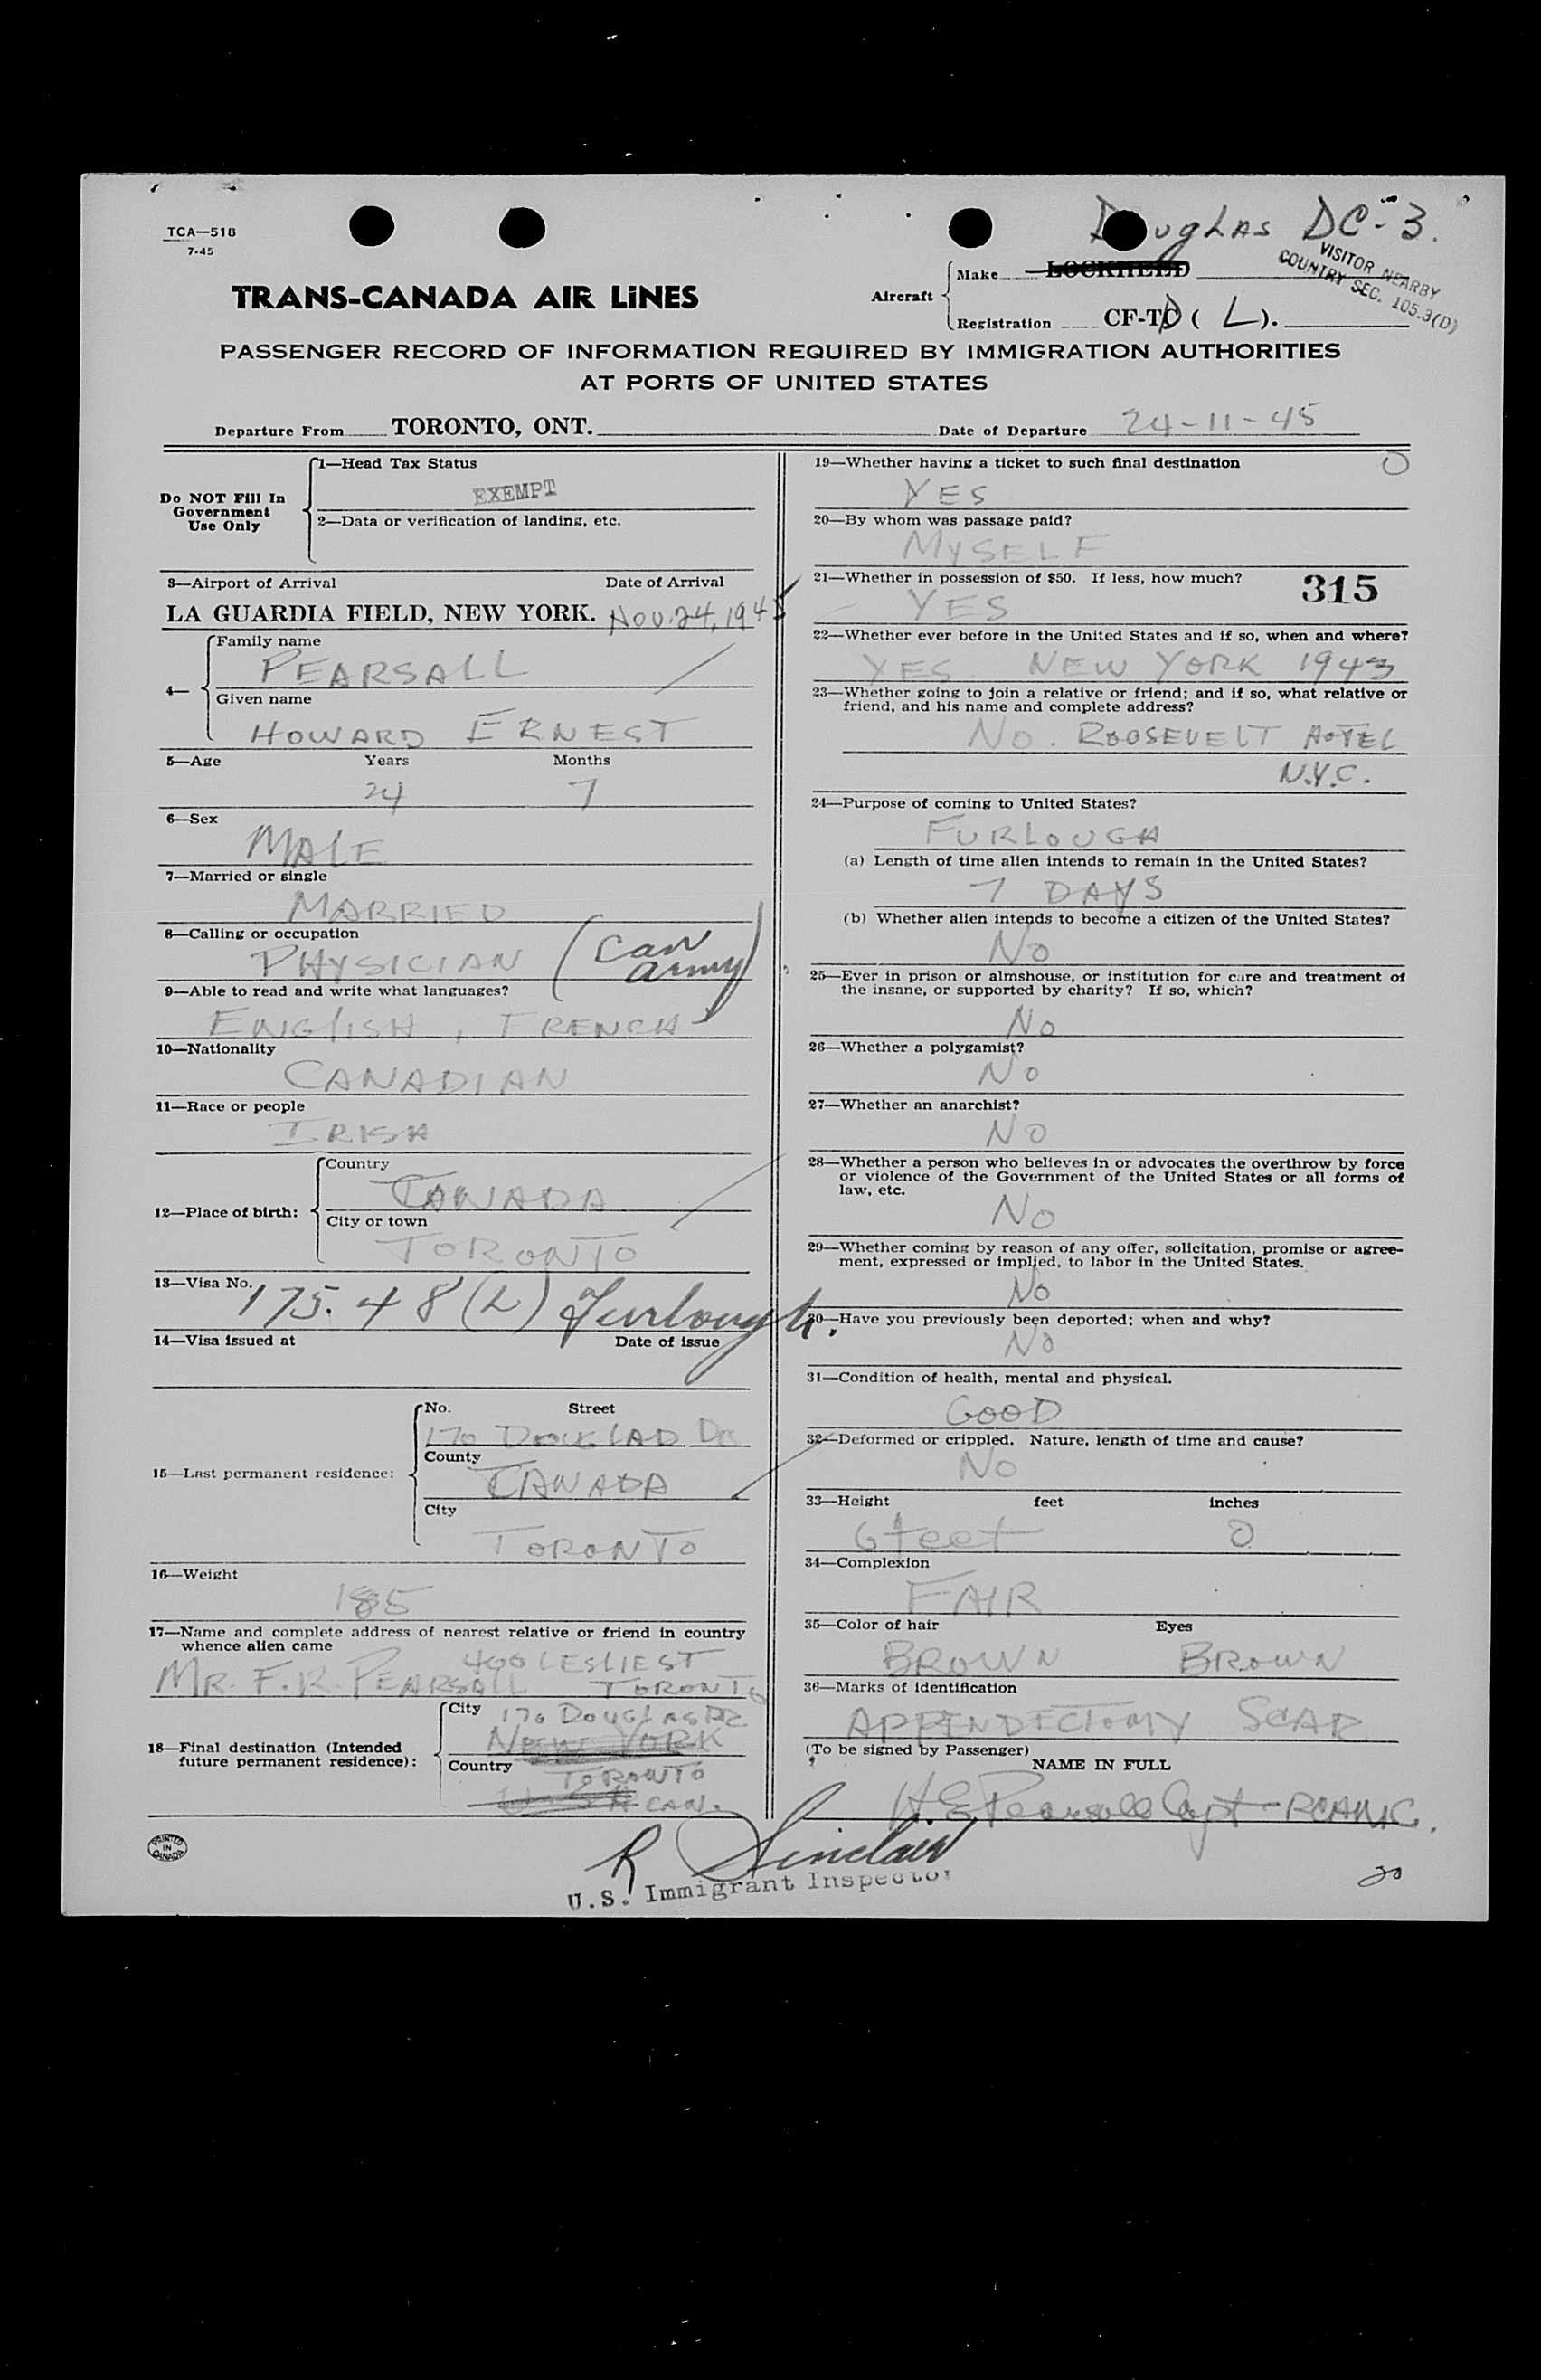 TCA—518
7-45
Douglas DC-3.
TRANS-CANADA AIR LINES
Aircraft
Make LOCKHEED
Registration CF-TD ( L ).
VISITOR NEARBY
COUNTRY SEC. 105.3(D)
PASSENGER RECORD OF INFORMATION REQUIRED BY IMMIGRATION AUTHORITIES
AT PORTS OF UNITED STATES
Departure From TORONTO, ONT.
Date of Departure 24-11-45
Do NOT Fill In
Government
Use Only
1—Head Tax Status
EXEMPT
2—Data or verification of landing, etc.
3—Airport of Arrival Date of Arrival
LA GUARDIA FIELD, NEW YORK. Nov. 24, 1945
4—
Family name
PEARSALL
Given name
HOWARD ERNEST
5—Age Years Months
24 7
6—Sex
MALE
7—Married or single
MARRIED
8—Calling or occupation
PHYSICIAN (Can
army)
9—Able to read and write what languages?
ENGLISH, FRENCH
10—Nationality
CANADIAN
11—Race or people
IRISH
12—Place of birth:
Country
CANADA
City or town
TORONTO
13—Visa No.
175.48 (L) Furlough.
14—Visa issued at Date of issue
15—Last permanent residence:
No. Street
170 DOUGLAS DR
County
CANADA
City
TORONTO
16—Weight
185
17—Name and complete address of nearest relative or friend in country
whence alien came
400 LESLIE ST
MR. F. R. PEARSALL TORONTO
18—Final destination (Intended
future permanent residence):
City 170 DOUGLAS DR.
NEW YORK
Country
TORONTO
USA CAN.
PRINTED
IN
CANADA
19—Whether having a ticket to such final destination
YES
20—By whom was passage paid?
MYSELF
21—Whether in possession of $50. If less, how much?
315
YES
22—Whether ever before in the United States and if so, when and where?
YES NEW YORK 1943
23—Whether going to join a relative or friend; and if so, what relative or
friend, and his name and complete address?
NO. ROOSEVELT HOTEL
N.Y.C.
24—Purpose of coming to United States?
FURLOUGH
(a) Length of time alien intends to remain in the United States?
7 DAYS
(b) Whether alien intends to become a citizen of the United States?
NO
25—Ever in prison or almshouse, or institution for care and treatment of
the insane, or supported by charity? If so, which?
NO
26—Whether a polygamist?
NO
27—Whether an anarchist?
NO
28—Whether a person who believes in or advocates the overthrow by force
or violence of the Government of the United States or all forms of
law, etc.
NO
29—Whether coming by reason of any offer, solicitation, promise or agree-
ment, expressed or implied, to labor in the United States.
NO
30—Have you previously been deported; when and why?
NO
31—Condition of health, mental and physical.
GOOD
32—Deformed or crippled. Nature, length of time and cause?
NO
33—Height feet inches
6 feet 0
34—Complexion
FAIR
35—Color of hair Eyes
BROWN BROWN
36—Marks of identification
APPENDECTOMY SCAR
(To be signed by Passenger)
NAME IN FULL
H E Pearsall Capt - RCAMC.
R Sinclair
U.S. Immigrant Inspector
20